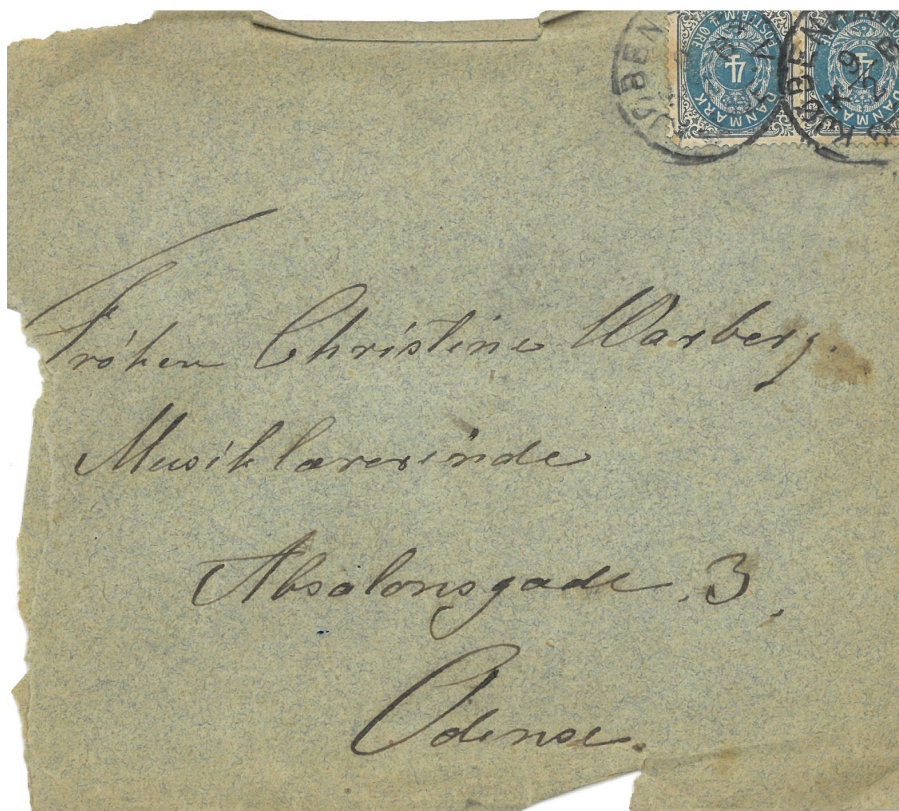 KJØBEN
DANMARK
4
DANMARK
4
KJØBENHAVN
Fröken Christine Warberg.
Musiklærerinde
Absalonsgade. 3.
Odense.